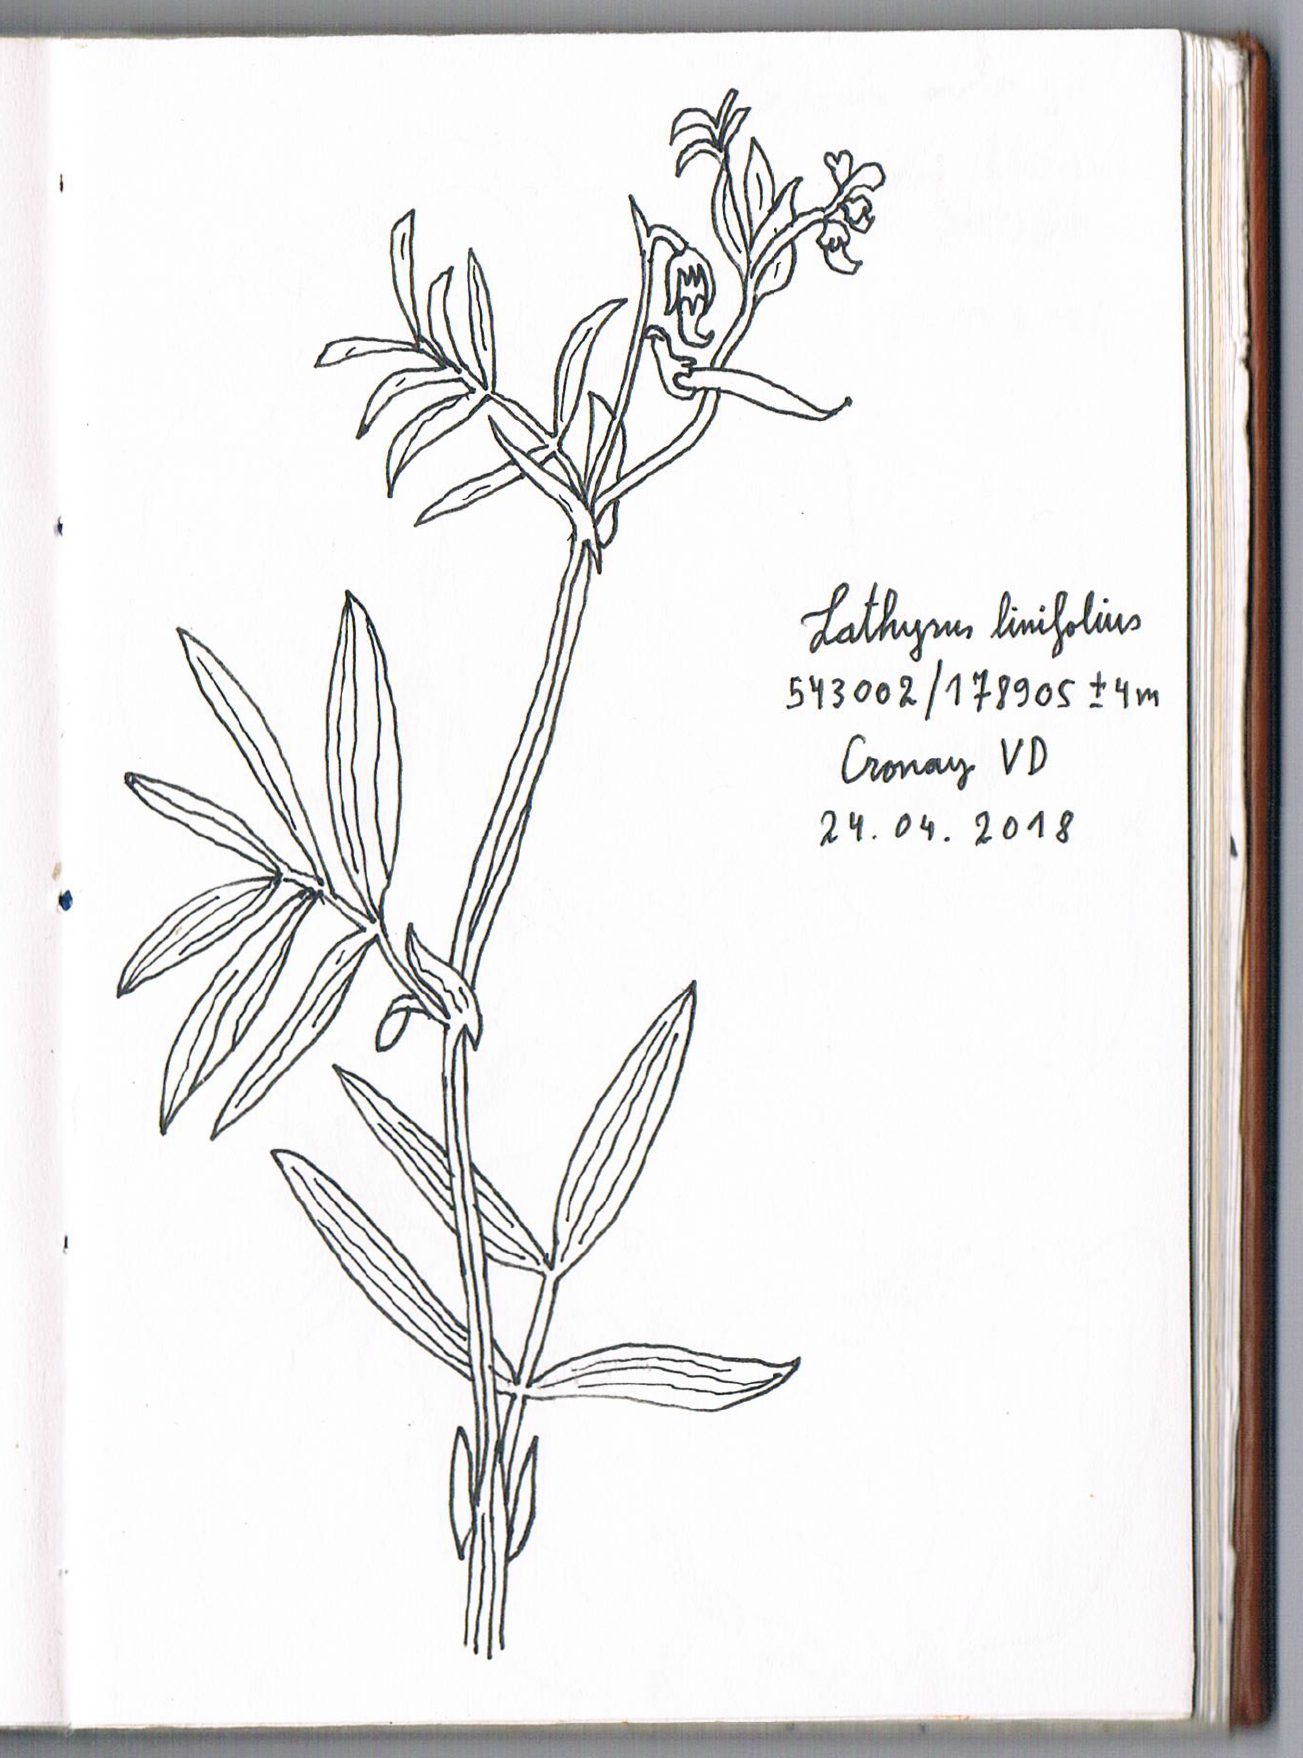 Lathyrus linifolius
543002/178905 ±4m
Cronay VD
24.04.2018